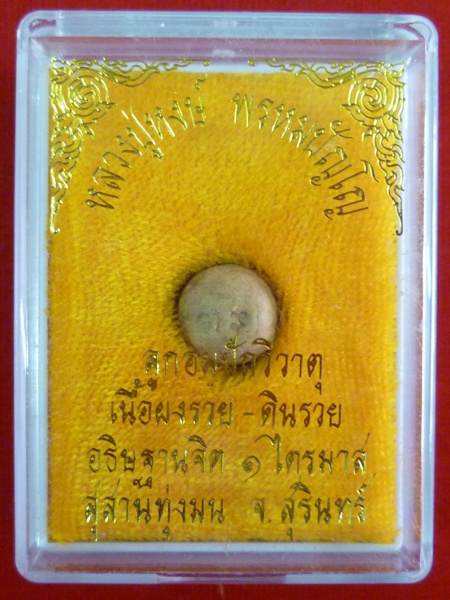 หลวงปู่หงษ์ พรหมปัญโญ
ลูกอมปัถวีธาตุ
เนื้อผงรวย - ดินรวย
อธิษฐานจิต ๑ ไตรมาส
สุสานทุ่งมน จ.สุรินทร์